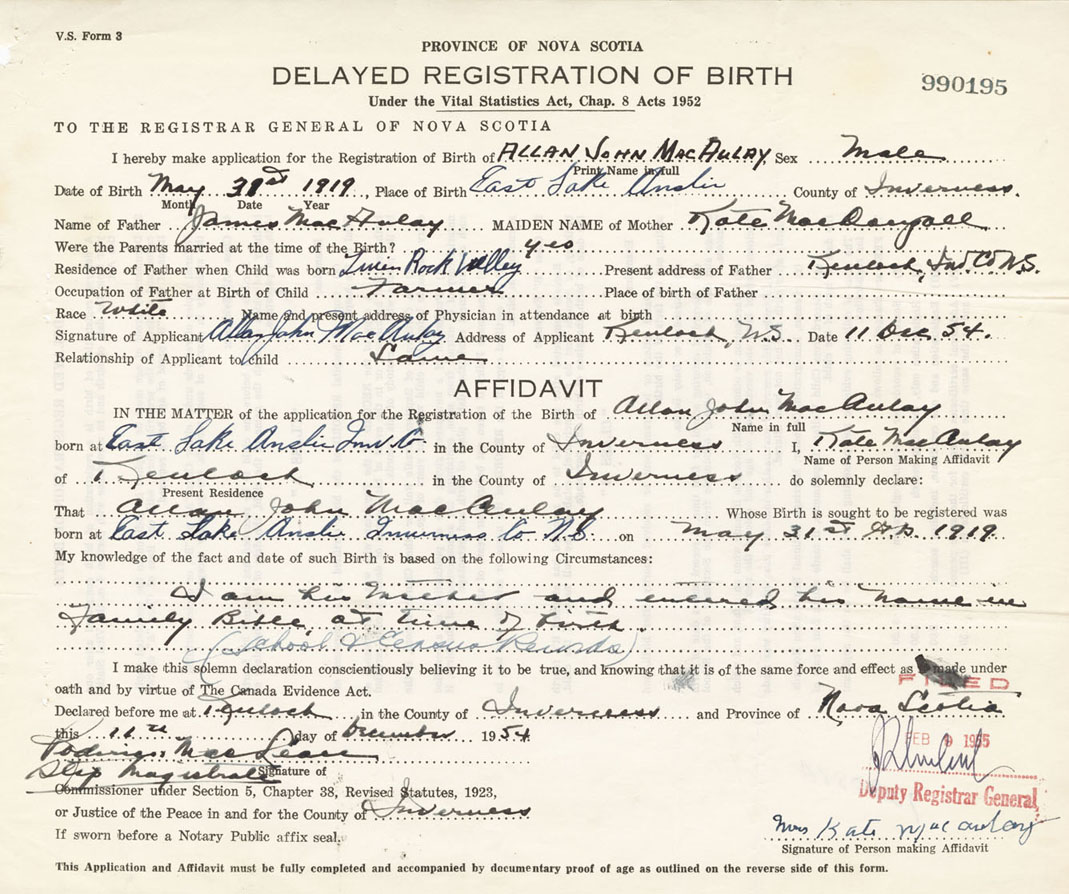 V.S. Form 3
PROVINCE OF NOVA SCOTIA
DELAYED REGISTRATION OF BIRTH
990195
Under the Vital Statistics Act, Chap. 8 Acts 1952
TO THE REGISTRAR GENERAL OF NOVA SCOTIA
I hereby make application for the Registration of Birth of ALLAN JOHN MACAULAY Sex Male
Print Name in full
Date of Birth May 31st 1919, Place of Birth East Lake Anslie County of Inverness.
Month Date Year
Name of Father James MacAulay MAIDEN NAME of Mother Kate MacDougall
Were the Parents married at the time of the Birth? yes
Residence of Father when Child was born Rock Valley Present address of Father Kenloch, Inv. Co. N.S.
Occupation of Father at Birth of Child Farmer Place of birth of Father
Race White Name and present address of Physician in attendance at birth
Signature of Applicant Allan John MacAulay Address of Applicant Kenloch, N.S. Date 11 Dec 54.
Relationship of Applicant to child Same
AFFIDAVIT
IN THE MATTER of the application for the Registration of the Birth of Allan John MacAulay
Name in full
born at East Lake Anslie Inv Co in the County of Inverness I, Kate MacAulay
Name of Person Making Affidavit
of Kenloch in the County of Inverness do solemnly declare:
Present Residence
That Allan John MacAulay Whose Birth is sought to be registered was
born at East Lake Anslie Inverness Co N.S. on May 31st A.D. 1919
My knowledge of the fact and date of such Birth is based on the following Circumstances:
I am his Mother and entered his name in
Family Bible, at time of birth.
(School & Census Records)
I make this solemn declaration conscientiously believing it to be true, and knowing that it is of the same force and effect as made under
FILED
oath and by virtue of The Canada Evidence Act.
Declared before me at Kenloch in the County of Inverness and Province of Nova Scotia
this 11th day of December 1954
FEB 9 1955
MacLean
Stip Magistrate
Signature of
Commissioner under Section 5, Chapter 38, Revised Statutes, 1923,
Deputy Registrar General
or Justice of the Peace in and for the County of Inverness
Mrs Kate MacAulay
If sworn before a Notary Public affix seal.
Signature of Person making Affidavit
This Application and Affidavit must be fully completed and accompanied by documentary proof of age as outlined on the reverse side of this form.